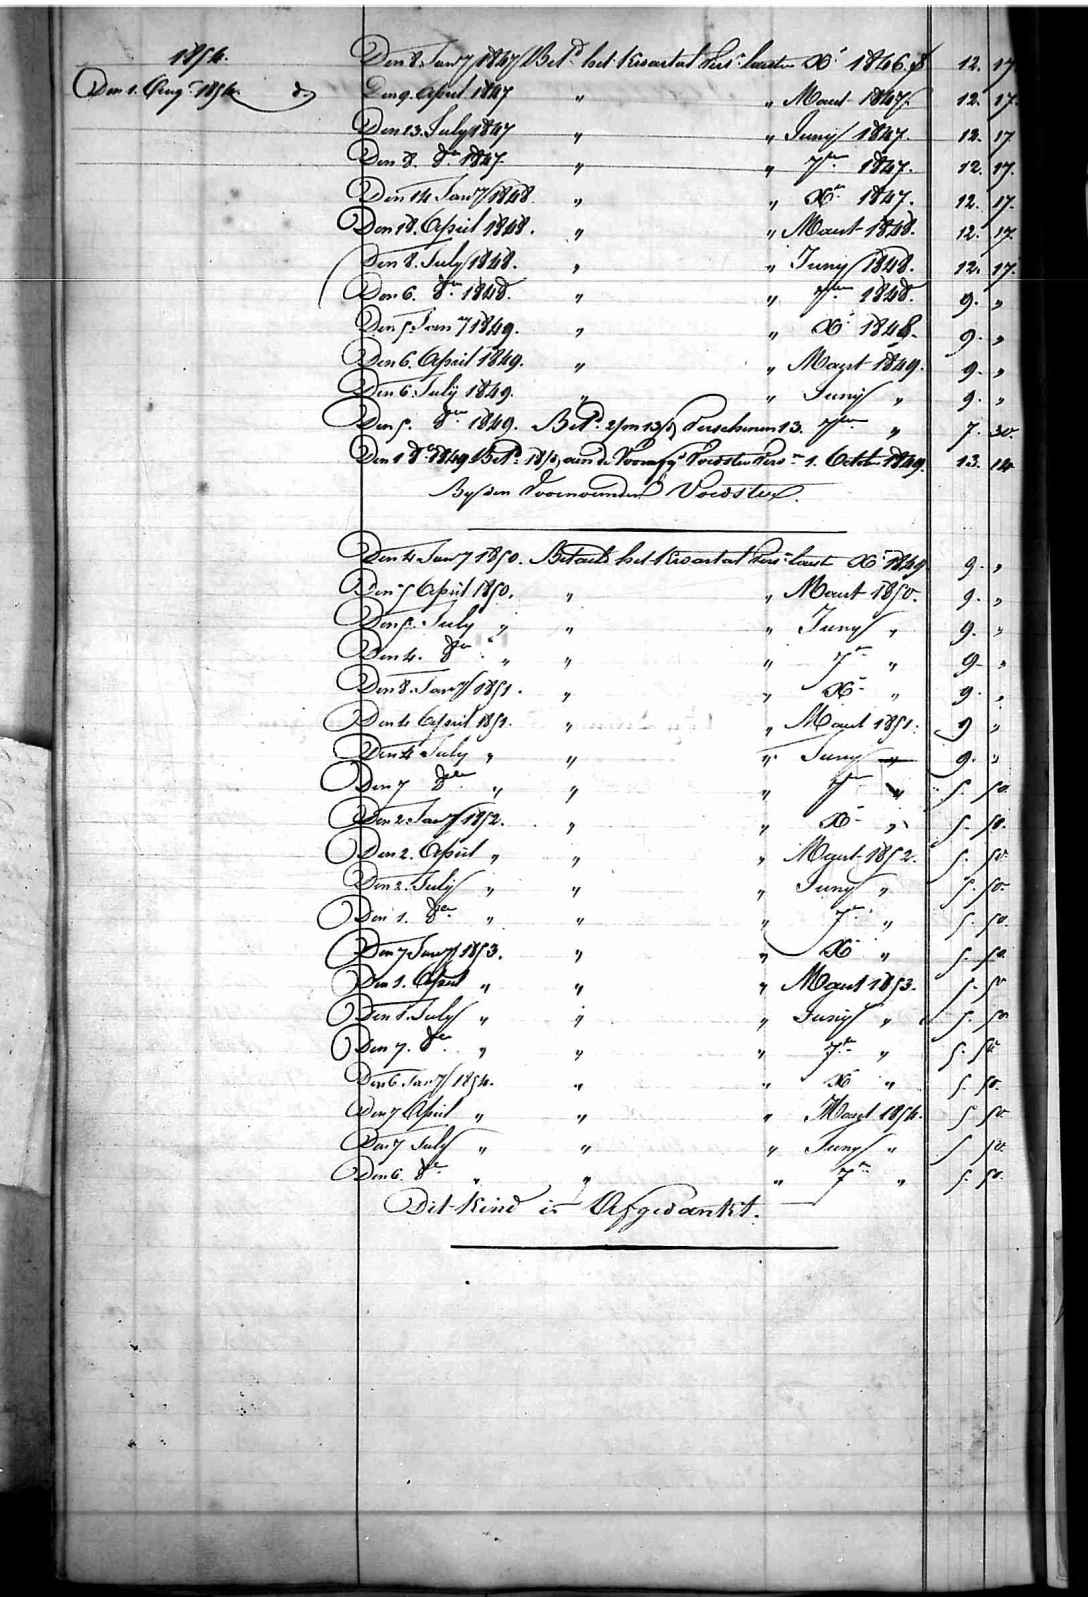 1854.
Den 1. Aug. 1854. d.
Den 8. Jany 1847 Betd. het Kwartaal Vers. laatsten Xr 1846. ƒ 12. 17.
Den 9. April 1847 " " Maart 1847. 12. 17.
Den 13. July 1847 " " Juny 1847. 12. 17.
Den 8. 8er 1847. " " 7er 1847. 12. 17.
Den 14 Jany 1848. " " Xr 1847. 12. 17.
Den 18. April 1848. " " Maart 1848. 12. 17.
Den 8. July 1848. " " Juny 1848. 12. 17.
Den 6. 8er 1848. " " 7er 1848. 9. "
Den 5. Jany 1849. " " Xr 1848. 9. "
Den 6. April 1849. " " Maart 1849. 9. "
Den 6. July 1849. " " Juny " 9. "
Den 5. 8er 1849. Betd. Verschenen 13. 7er " 7. 30.
Den 1 1849 Betd. aan de Voedster Vers. 1. Octob 1849. 13. 14.
By den Voornoemden Voedster.
Den 4 Jany 1850. Betaald het Kwartaal Vers. laatst Xr 1849 9. "
Den 5 April 1850. " " Maart 1850. 9. "
Den 5. July " " " Juny " 9. "
Den 4. 8er " " " 7er " 9. "
Den 8. Jany 1851. " " Xr " 9. "
Den 4 April 1851. " " Maart 1851. 9 "
Den 4 July " " " Juny " 9. "
Den 7 8er " " " 7er " 5. 50.
Den 2. Jany 1852. " " Xr " 5. 50.
Den 2. April " " " Maart 1852. 5. 50.
Den 2. July " " " Juny " 5. 50.
Den 1. 8er " " " 7er " 5. 50.
Den 7 Jany 1853. " " Xr " 5. 50.
Den 1. April " " " Maart 1853. 5. 50
Den 1. July " " " Juny " 5. 50
Den 7. 8er " " " 7er " 5. 50
Den 6 Jany 1854. " " Xr " 5. 50.
Den 7 April " " " Maart 1854. 5 50
Den 7 July " " " Juny " 5 50.
Den 6. 8er " " " 7er " 5. 50.
Dit Kind is Afgedankt.